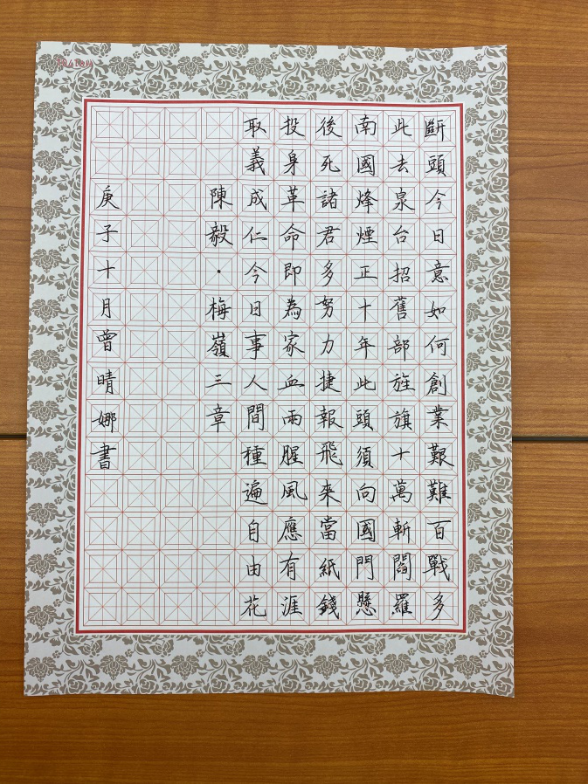 斷頭今日意如何創業艱難百戰多
此去泉台招舊部旌旗十萬斬閻羅
南國烽煙正十年此頭須向國門懸
後死諸君多努力捷報飛來當紙錢
投身革命即為家血雨腥風應有涯
取義成仁今日事人間種遍自由花
陳毅·梅嶺三章
庚子十月曾晴娜書